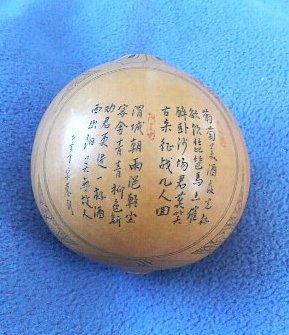 葡萄美酒夜光杯
欲饮琵琶马上催
醉卧沙场君莫笑
古来征战几人回
渭城朝雨浥轻尘
客舍青青柳色新
劝君更进一杯酒
西出阳关無故人